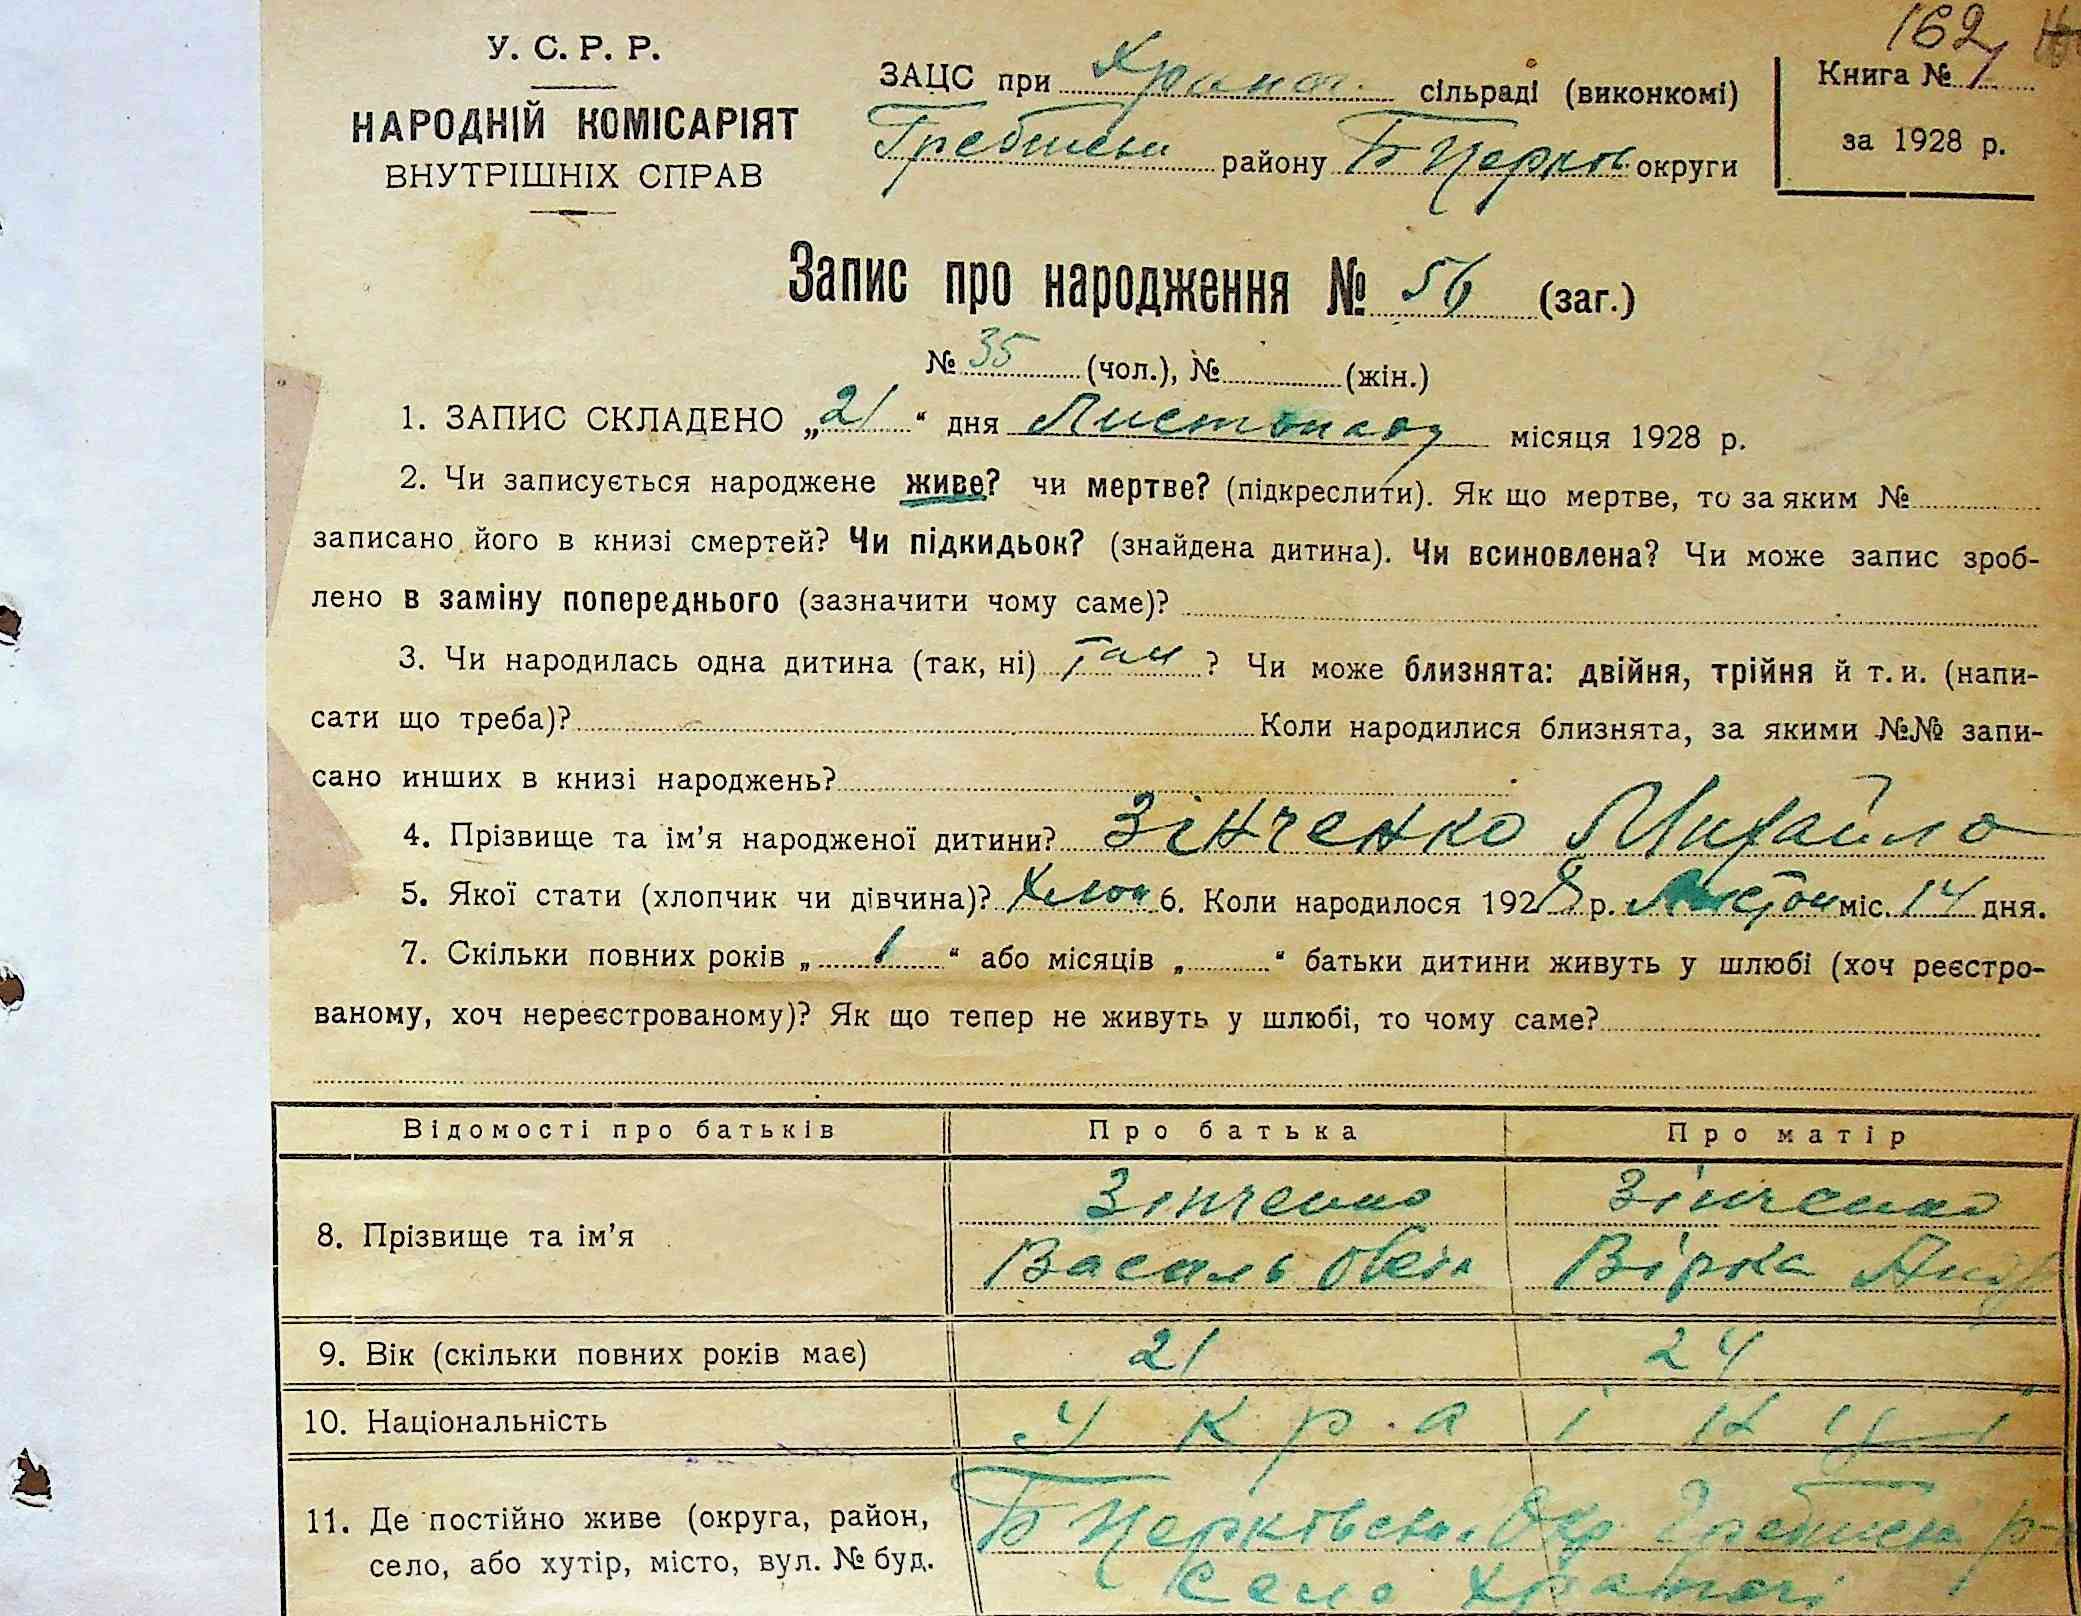 162
У. С. Р. Р.
НАРОДНІЙ КОМІСАРІЯТ
ВНУТРІШНІХ СПРАВ
ЗАЦС при сільраді (виконкомі)
Гребінсві району Б Церків округи
Книга № 1
за 1928 р.
Запис про народження № 56 (заг.)
№ 35 (чол.), № (жін.)
1. ЗАПИС СКЛАДЕНО „21“ дня Листопаду місяця 1928 р.
2. Чи записується народжене живе? чи мертве? (підкреслити). Як що мертве, то за яким №
записано його в книзі смертей? Чи підкидьок? (знайдена дитина). Чи всиновлена? Чи може запис зроб-
лено в заміну попереднього (зазначити чому саме)?
3. Чи народилась одна дитина (так, ні) Так ? Чи може близнята: двійня, трійня й т. и. (напи-
сати що треба)? Коли народилися близнята, за якими №№ запи-
сано инших в книзі народжень?
4. Прізвище та ім’я народженої дитини? Зінченко Михайло
5. Якої стати (хлопчик чи дівчина)? Хлоп 6. Коли народилося 1928 р. Листоп міс. 14 дня.
7. Скільки повних років „1“ або місяців „ “ батьки дитини живуть у шлюбі (хоч реєстро-
ваному, хоч нереєстрованому)? Як що тепер не живуть у шлюбі, то чому саме?
Відомості про батьків Про батька Про матір
8. Прізвище та ім’я
Зінченко Зінченко
Василь Овсі Вірка Андр
9. Вік (скільки повних років має) 21 24
10. Національність Українці
11. Де постійно живе (округа, район,
село, або хутір, місто, вул. № буд.
Б Церківськ. Окр. р-
Село